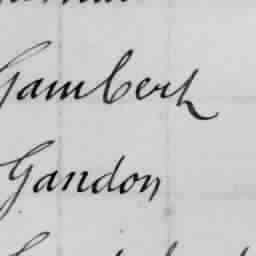 Gambert
Gandon